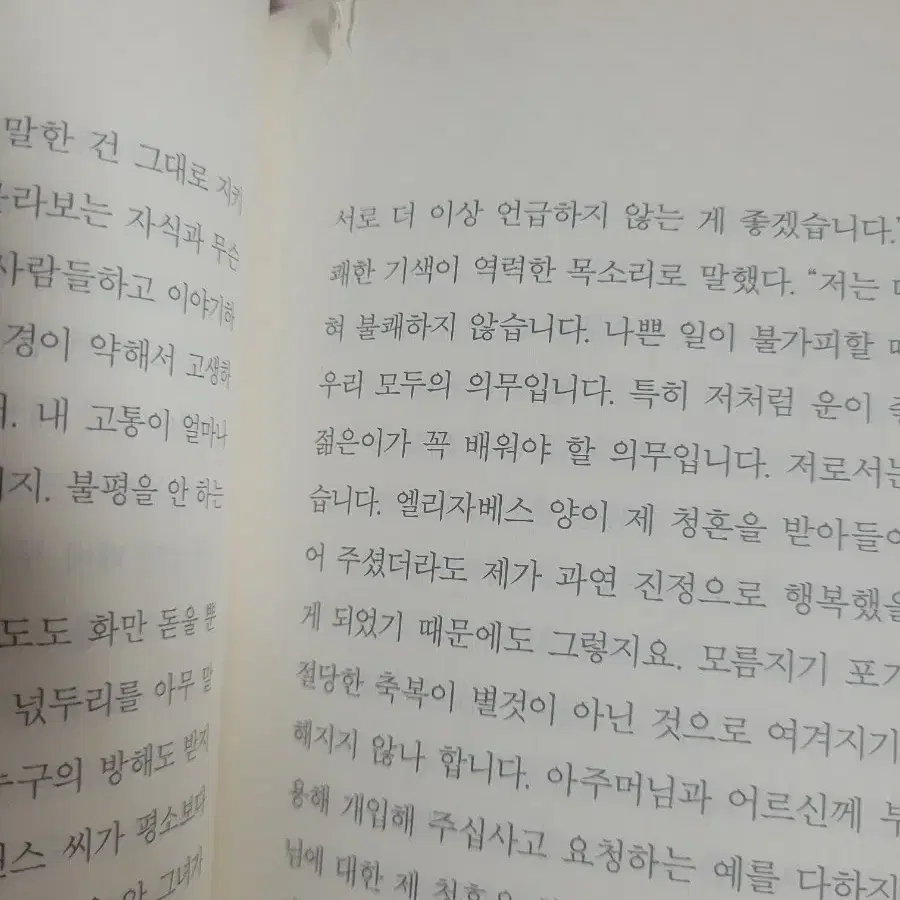 말한 건 그대로 지키
라보는 자식과 무슨
사람들하고 이야기하
경이 약해서 고생하
내 고통이 얼마나
지. 불평을 안 하는
도도 화만 돋을 뿐
넋두리를 아무 말
구의 방해도 받지
스 씨가 평소보다
그녀가
서로 더 이상 언급하지 않는 게 좋겠습니다.”
쾌한 기색이 역력한 목소리로 말했다. “저는
혀 불쾌하지 않습니다. 나쁜 일이 불가피할
우리 모두의 의무입니다. 특히 저처럼 운이
젊은이가 꼭 배워야 할 의무입니다. 저로서는
습니다. 엘리자베스 양이 제 청혼을 받아들
어 주셨더라도 제가 과연 진정으로 행복했을
게 되었기 때문에도 그렇지요. 모름지기 포기
절당한 축복이 별것이 아닌 것으로 여겨지기
해지지 않나 합니다. 아주머님과 어르신께
용해 개입해 주십사고 요청하는 예를 다하지
님에 대한 제 청혼을